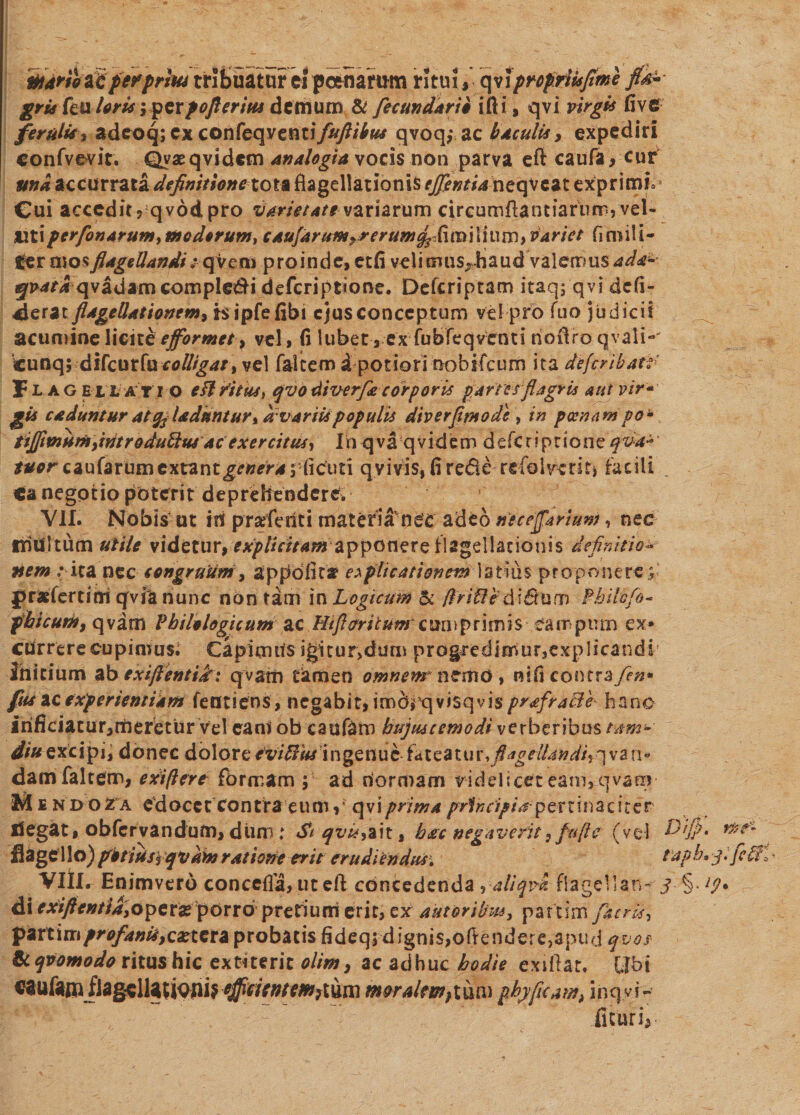 mario ac per prius tribuatur ei pœnarum ritui, qvi propriisſime fla-
gris ſeu loris; per poſterius demum & ſecundariò iſti, qvi virgis ſive
ferulis, adeoq; ex conſeqventi fuſtibus qvoq; ac baculis, expediri
conſvevit. Qvæ qvidem analogia vocis non parva eſt cauſa, cur
unâ accurratâ definitione tota flagellationis eſſentia neqveat exprimi.
Cui accedit, qvòd pro varietate variarum circumſtantiarum, vel-
uti perſonarum, modorum, cauſarum, rerumq́; ſimilium, variet ſimili-
ter mos flagellandi: qvem proinde, etſi velimus, haud valemus adæ-
qvatâ qvâdam complecti deſcriptione. Deſcriptam itaq; qvi deſi-
derat flagellationem, is ipſe ſibi ejus conceptum vel pro ſuo judicii
acumine licitè efformet, vel, ſi lubet, ex ſubſeqventi noſtro qvali-
cunq; diſcurſu colligat, vel ſaltem à potiori nobiſcum ita deſcribat:
FLAGELLATIO eſt ritus, qvo diverſæ corporis partes flagris aut vir-
gis cæduntur atq́; læduntur, à variis populis diverſimodè, in pœnam po-
tiſſimùm, introductus ac exercitus, In qvâ qvidem deſcriptione qva-
tuor cauſarum extant genera; ſicuti qvivis, ſi rectè reſolverit, facili
ea negotio poterit deprehendere.
VII. Nobis ut in præſenti materiâ nec adeò neceſſarium, nec
multùm utile videtur, explicitam apponere flagellationis definitio-
nem: ita nec congruùm, appoſitæ explicationem latiùs proponere;
præſertim qviâ nunc non tàm in Logicum & ſtrictè dictum Philoſo-
phicum, qvàm Philologicum ac Hiſtoricum cumprimis campum ex-
currere cupimus. Capimus igitur, dum progredimur, explicandi
initium ab exiſtentiâ: qvam tamen omnem nemo, niſi contra ſen-
ſus ac experientiam ſentiens, negabit, imò, qvisqvis præfractè hanc
inficiatur, meretur vel eam ob cauſam hujuscemodi verberibus tam-
diu excipi, donec dolore evictus ingenuè fateatur, flagellandi, qvan-
dam ſaltem, exiſtere formam; ad normam videlicet eam, qvam
MENDOZA edocet contra eum, qvi prima principia pertinaciter
negat, obſervandum, dum: Si qvis, ait, hæc negaverit, fuſte (vel
flagello) potiùs, qvàm ratione erit erudiendus.
Diſp. me-
taph. 3. ſect.
3 §. 19.
VIII. Enimverò conceſſâ, ut eſt concedenda, aliqvâ flagellan-
di exiſtentiâ, operæ porrò pretium erit, ex autoribus, partim ſacris,
partim profanis, cætera probatis fideq; dignis, oſtendere, apud qvos
& qvomodo ritus hic extiterit olim, ac adhuc hodie exiſtat. Ubi
cauſam flagellationis efficientem, tùm moralem, tùm phyſicam, inqvi-
ſituri,